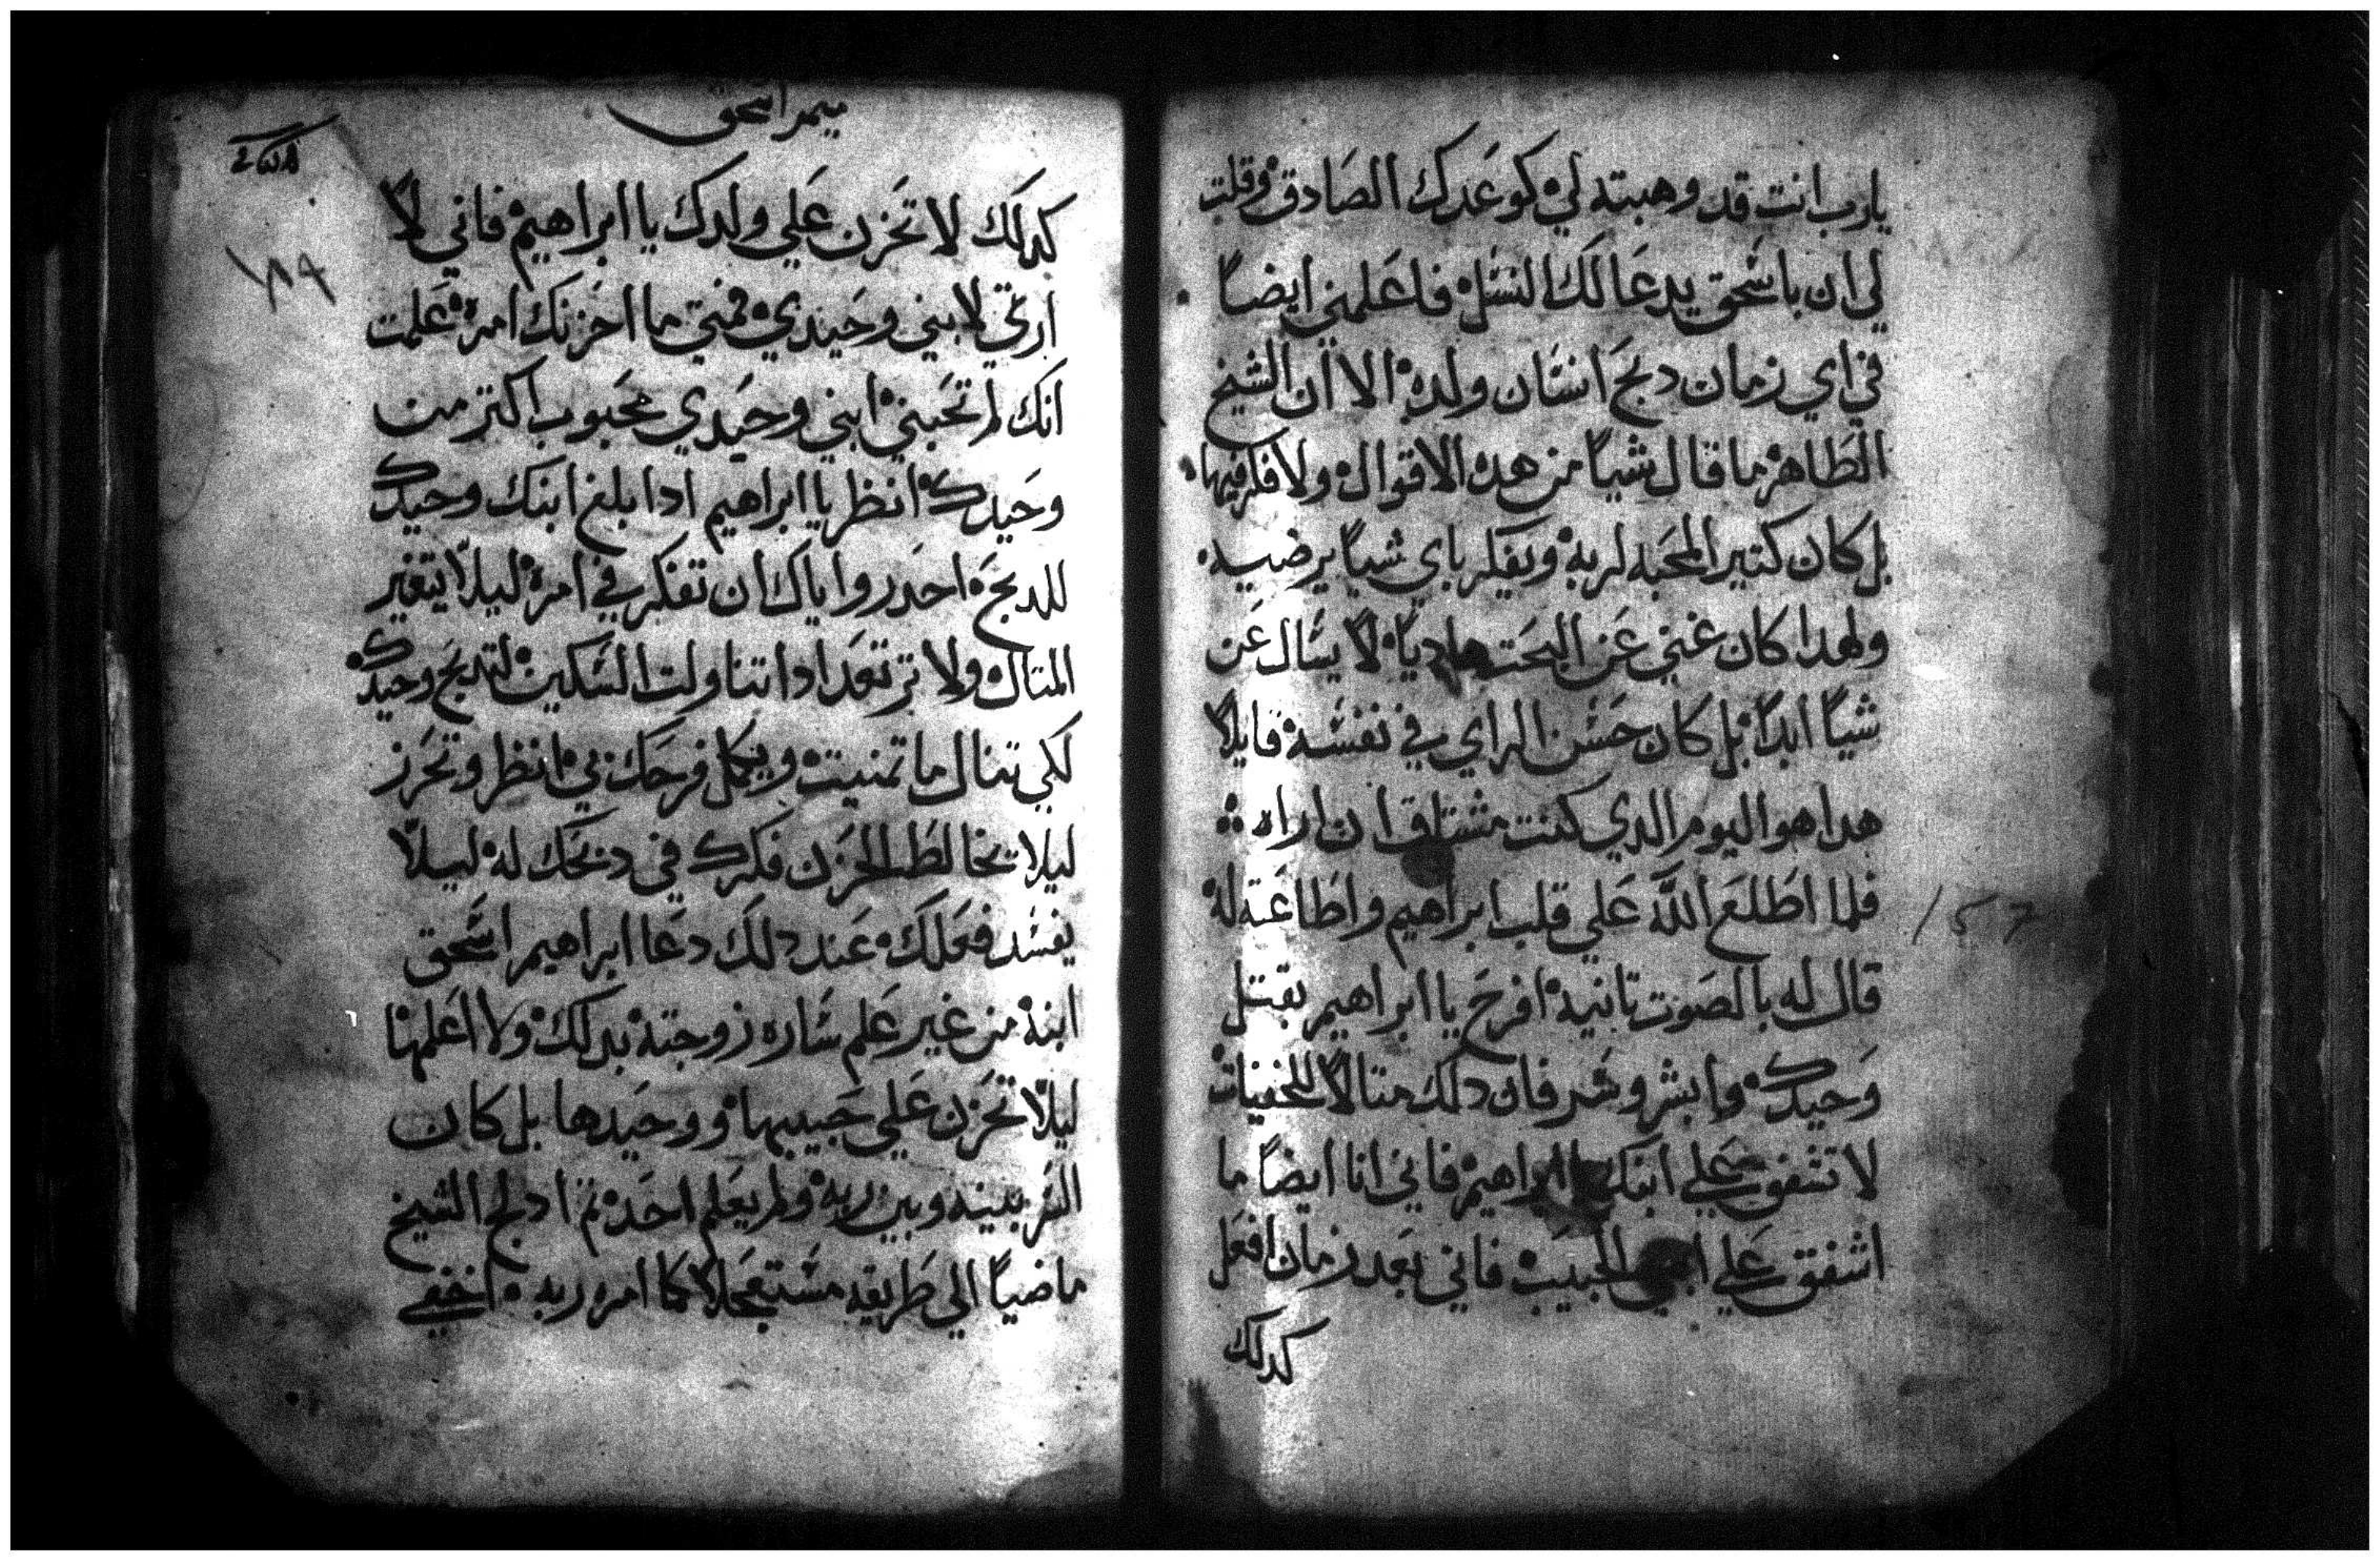 يارب انت قد وهبته لي كوعدك الصادق وقلت
لي ان باسحق يدعا لك النسل فاعلمني ايضاً
في اي زمان دبح انسان ولده الا ان الشيخ
الطاهر ما قال شياً من هده الاقوال ولا فكر فيها
بل كان كتير المحبه لربه ويفكر باي شياً يرضيه
ولهدا كان غني عن البحت هادياً لا يسال عن
شياً ابداً بل كان حسن الراي في نفسه قايلاً
هدا هو اليوم الدي كنت مشتاق ان اراه
فلما اطلع الله علي قلب ابراهيم واطاعته له
قال له بالصوت تانيه افرح يا ابراهيم بقتل
وحيدك وابشر وسر فان دلك متالاً للخفيات
لا تشفق علي ابنك يا ابراهيم فاني انا ايضاً ما
اشفق علي ابني الحبيب فاني بعد زمان افعل
كدلك
ميمر اسحق
١٨٩
157
كدلك لا تحزن علي ولدك يا ابراهيم فاني لا
ارتي لابني وحيدي فمتي ما احزنك امره علمت
انك لم تحبني ابني وحيدي محبوب اكتر من
وحيدك انظر يا ابراهيم ادا بلغ ابنك وحيدك
للدبح احدر واياك ان تفكر في امره ليلا يتغير
المتال ولا ترتعد ادا تناولت السكين لتدبح وحيدك
لكي تنال ما تمنيت ويكمل فرحك بي انظر وتحرز
ليلا تخالط الحزن فكرك في دبحك له ليلا
يفسد فعلك عند دلك دعا ابراهيم اسحق
ابنه من غير علم ساره زوجته بدلك ولا اعلمها
ليلا تحزن علي حبيبها ووحيدها بل كان
السر بينه وبين ربه ولم يعلم احد تم ادلج الشيخ
ماضياً الي طريقه مستعجلاً كما امره ربه اخفي